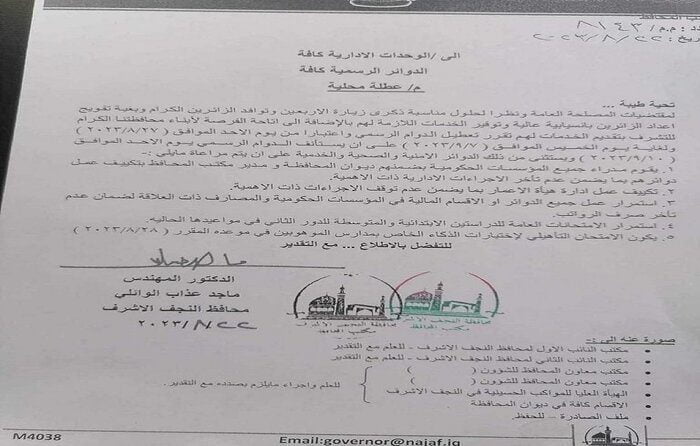 العدد: م.م/ ٨١٤٣
٢٠٢٣/٨/٢٢
الى /الوحدات الادارية كافة
الدوائر الرسمية كافة
م/ عطلة محلية
تحية طيبة ...
لمقتضيات المصلحة العامة ونظرا لحلول مناسبة ذكرى زيارة الاربعين وتوافد الزائرين الكرام وبغية تفويج
اعداد الزائرين بانسيابية عالية وتوفير الخدمات اللازمة لهم بالإضافة الى اتاحة الفرصة لأبناء محافظتنا الكرام
للتشرف بتقديم الخدمات لهم تقرر تعطيل الدوام الرسمي واعتبارا من يوم الاحد الموافق (٢٠٢٣/٨/٢٧)
ولغاية يوم الخميس الموافق (٢٠٢٣/٩/٧) على ان يستأنف الدوام الرسمي يوم الاحد الموافق
(٢٠٢٣/٩/١٠) ويستثنى من ذلك الدوائر الامنية والصحية والخدمية على ان يتم مراعاة مايلي:-
١. يقوم مدراء جميع المؤسسات الحكومية بضمنهم ديوان المحافظة و مدير مكتب المحافظ بتكييف عمل
دوائرهم بما يضمن عدم تأخر الاجراءات الادارية ذات الاهمية.
٢. تكييف عمل ادارة هيأة الاعمار بما يضمن عدم توقف الاجراءات ذات الاهمية.
٣. استمرار عمل جميع الدوائر او الاقسام المالية في المؤسسات الحكومية والمصارف ذات العلاقة لضمان عدم
تأخر صرف الرواتب.
٤. استمرار الامتحانات العامة للدراستين الابتدائية والمتوسطة للدور الثاني في مواعيدها الحالية.
٥. يكون الامتحان التأهيلي لإختبارات الذكاء الخاص بمدارس الموهوبين في موعده المقرر (٢٠٢٣/٨/٢٨)
للتفضل بالاطلاع ... مع التقدير
الدكتور المهندس
ماجد عذاب الوائلي
محافظ النجف الاشرف
٢٠٢٣/٨/٢٢
محافظة النجف الاشرف
مكتب المحافظ
محافظة النجف الاشرف
مكتب المحافظ
صورة عنه الى :-
• مكتب النائب الاول لمحافظ النجف الاشرف - للعلم مع التقدير
• مكتب النائب الثاني لمحافظ النجف الاشرف - للعلم مع التقدير
• مكتب معاون المحافظ للشؤون ( )
• مكتب معاون المحافظ للشؤون ( )
• الهيأة العليا للمواكب الحسينية في النجف الاشرف
للعلم واجراء مايلزم بصدده مع التقدير.
• الاقسام كافة في ديوان المحافظة
• ملف الصادرة - للحفظ.
M4038
Email:governor@najaf.iq